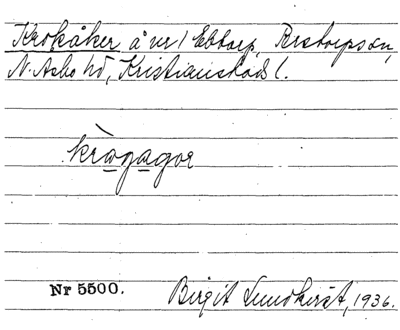 Krokåker å nr 1 Ebtorp, Perstorps sn,
N. Åsbo hd, Kristianstads l.
kràgagor
Nr 5500.
Birgit Lundkvist, 1936.